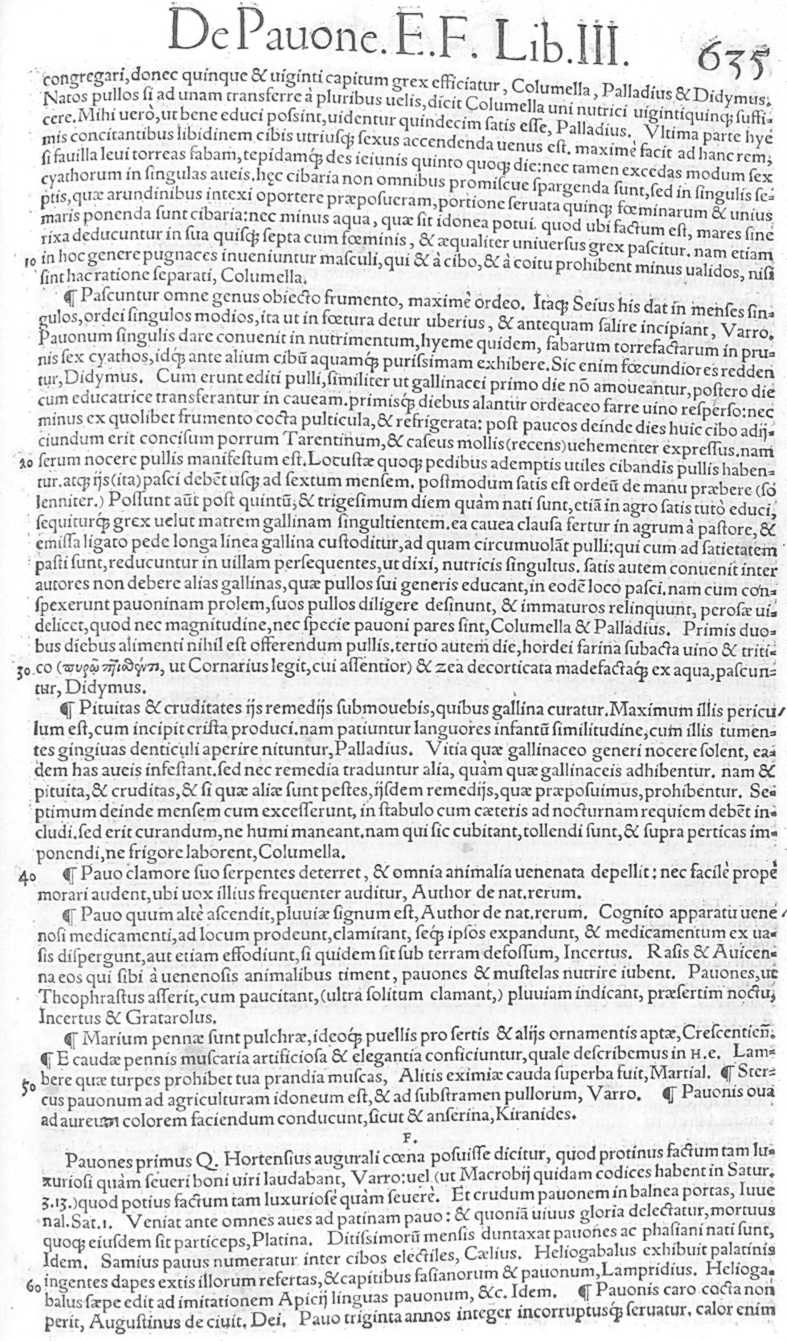 De Pauone. E.F. Lib.III. 635
congregari, donec quinque & uiginti capitum grex efficiatur, Columella, Palladius & Didymus.
Natos pullos si ad unam transferre à pluribus uelis, dicit Columella uni nutrici uigintiquinqꝫ suffi-
cere. Mihi uerò, ut bene educi possint, uidentur quindecim satis esse, Palladius. Vltima parte hye
mis concitantibus libidinem cibis utriusqꝫ sexus accendenda uenus est. maximè facit ad hanc rem,
si fauilla leui torreas fabam, tepidamqꝫ des ieiunis quinto quoqꝫ die: nec tamen excedas modum sex
cyathorum in singulas aueis. hęc cibaria non omnibus promiscue spargenda sunt, sed in singulis se-
ptis, quæ arundinibus intexi oportere præposueram, portione seruata quinqꝫ fœminarum & unius
maris ponenda sunt cibaria: nec minus aqua, quæ sit idonea potui. quod ubi factum est, mares sine
rixa deducuntur in sua quisqꝫ septa cum fœminis, & æqualiter uniuersus grex pascitur. nam etiam
10 in hoc genere pugnaces inueniuntur masculi, qui & à cibo, & à coitu prohibent minus ualidos, nisi
sint hac ratione separati, Columella.
¶ Pascuntur omne genus obiecto frumento, maximè ordeo. Itaqꝫ Seius his dat in menses sin-
gulos, ordei singulos modios, ita ut in fœtura detur uberius, & antequam salire incipiant, Varro.
Pauonum singulis dare conuenit in nutrimentum, hyeme quidem, fabarum torrefactarum in pru-
nis sex cyathos, idqꝫ ante alium cibū aquamqꝫ purissimam exhibere. Sic enim fœcundiores redden
tur, Didymus. Cum erunt editi pulli, similiter ut gallinacei primo die nō amoueantur, postero die
cum educatrice transferantur in caueam. primisqꝫ diebus alantur ordeaceo farre uino resperso: nec
minus ex quolibet frumento cocta pulticula, & refrigerata: post paucos deinde dies huic cibo adij-
ciundum erit concisum porrum Tarentinum, & caseus mollis (recens) uehementer expressus. nam
20 serum nocere pullis manifestum est. Locustæ quoqꝫ pedibus ademptis utiles cibandis pullis haben-
tur. atqꝫ ijs (ita) pasci debēt usqꝫ ad sextum mensem. postmodum satis est ordeū de manu præbere (so
lenniter.) Possunt aūt post quintū, & trigesimum diem quàm nati sunt, etiā in agro satis tutò educi,
sequiturqꝫ grex uelut matrem gallinam singultientem. ea cauea clausa fertur in agrum à pastore, &
emissa ligato pede longa linea gallina custoditur, ad quam circumuolāt pulli: qui cum ad satietatem
pasti sunt, reducuntur in uillam persequentes, ut dixi, nutricis singultus. satis autem conuenit inter
autores non debere alias gallinas, quæ pullos sui generis educant, in eodē loco pasci. nam cum con-
spexerunt pauoninam prolem, suos pullos diligere desinunt, & immaturos relinquunt, perosæ ui-
delicet, quod nec magnitudine, nec specie pauoni pares sint, Columella & Palladius. Primis duo-
bus diebus alimenti nihil est offerendum pullis. tertio autem die, hordei farina subacta uino & triti-
30 co ( ut Cornarius legit, cui assentior) & zea decorticata madefactaqꝫ ex aqua, pascun-
tur, Didymus.
¶ Pituitas & cruditates ijs remedijs submouebis, quibus gallina curatur. Maximum illis pericu/
lum est, cum incipit crista produci. nam patiuntur languores infantū similitudine, cum illis tumen-
tes gingiuas denticuli aperire nituntur, Palladius. Vitia quæ gallinaceo generi nocere solent, ea-
dem has aueis infestant. sed nec remedia traduntur alia, quàm quæ gallinaceis adhibentur. nam &
pituita, & cruditas, & si quæ aliæ sunt pestes, ijsdem remedijs, quæ præposuimus, prohibentur. Se-
ptimum deinde mensem cum excesserunt, in stabulo cum cæteris ad nocturnam requiem debēt in-
cludi. sed erit curandum, ne humi maneant. nam qui sic cubitant, tollendi sunt, & supra perticas im-
ponendi, ne frigore laborent, Columella.
40 ¶ Pauo clamore suo serpentes deterret, & omnia animalia uenenata depellit: nec facilè propè
morari audent, ubi uox illius frequenter auditur, Author de nat. rerum.
¶ Pauo quum altè ascendit, pluuiæ signum est, Author de nat. rerum. Cognito apparatu uene/
nosi medicamenti, ad locum prodeunt, clamitant, seqꝫ ipsos expandunt, & medicamentum ex ua-
sis dispergunt, aut etiam effodiunt, si quidem sit sub terram defossum, Incertus. Rasis & Auicen-
na eos qui sibi à uenenosis animalibus timent, pauones & mustelas nutrire iubent. Pauones, ut
Theophrastus asserit, cum paucitant, (ultra solitum clamant,) pluuiam indicant, præsertim noctu,
Incertus & Gratarolus.
¶ Marium pennæ sunt pulchræ, ideoqꝫ puellis pro sertis & alijs ornamentis aptæ, Crescentien̄.
¶ E caudæ pennis muscaria artificiosa & elegantia conficiuntur, quale describemus in H.e. Lam-
50 bere quæ turpes prohibet tua prandia muscas, Alitis eximiæ cauda superba fuit, Martial. ¶ Ster-
cus pauonum ad agriculturam idoneum est, & ad substramen pullorum, Varro. ¶ Pauonis oua
ad aureum colorem faciendum conducunt, sicut & anserina, Kiranides.
F.
Pauones primus Q. Hortensius augurali cœna posuisse dicitur, quod protinus factum tam lu-
xuriosi quàm seueri boni uiri laudabant, Varro: uel (ut Macrobij quidam codices habent in Satur.
3.13.) quod potius factum tam luxuriosè quàm seuerè. Et crudum pauonem in balnea portas, Iuue
nal. Sat.1. Veniat ante omnes aues ad patinam pauo: & quoniā uiuus gloria delectatur, mortuus
quoqꝫ eiusdem sit particeps, Platina. Ditissimorū mensis duntaxat pauones ac phasiani nati sunt,
Idem. Samius pauus numeratur inter cibos electiles, Cælius. Heliogabalus exhibuit palatinis
60 ingentes dapes extis illorum refertas, & capitibus fasianorum & pauonum, Lampridius. Helioga-
balus sæpe edit ad imitationem Apicij linguas pauonum, &c. Idem. ¶ Pauonis caro cocta non
perit, Augustinus de ciuit. Dei. Pauo triginta annos integer incorruptusqꝫ seruatur. calor enim